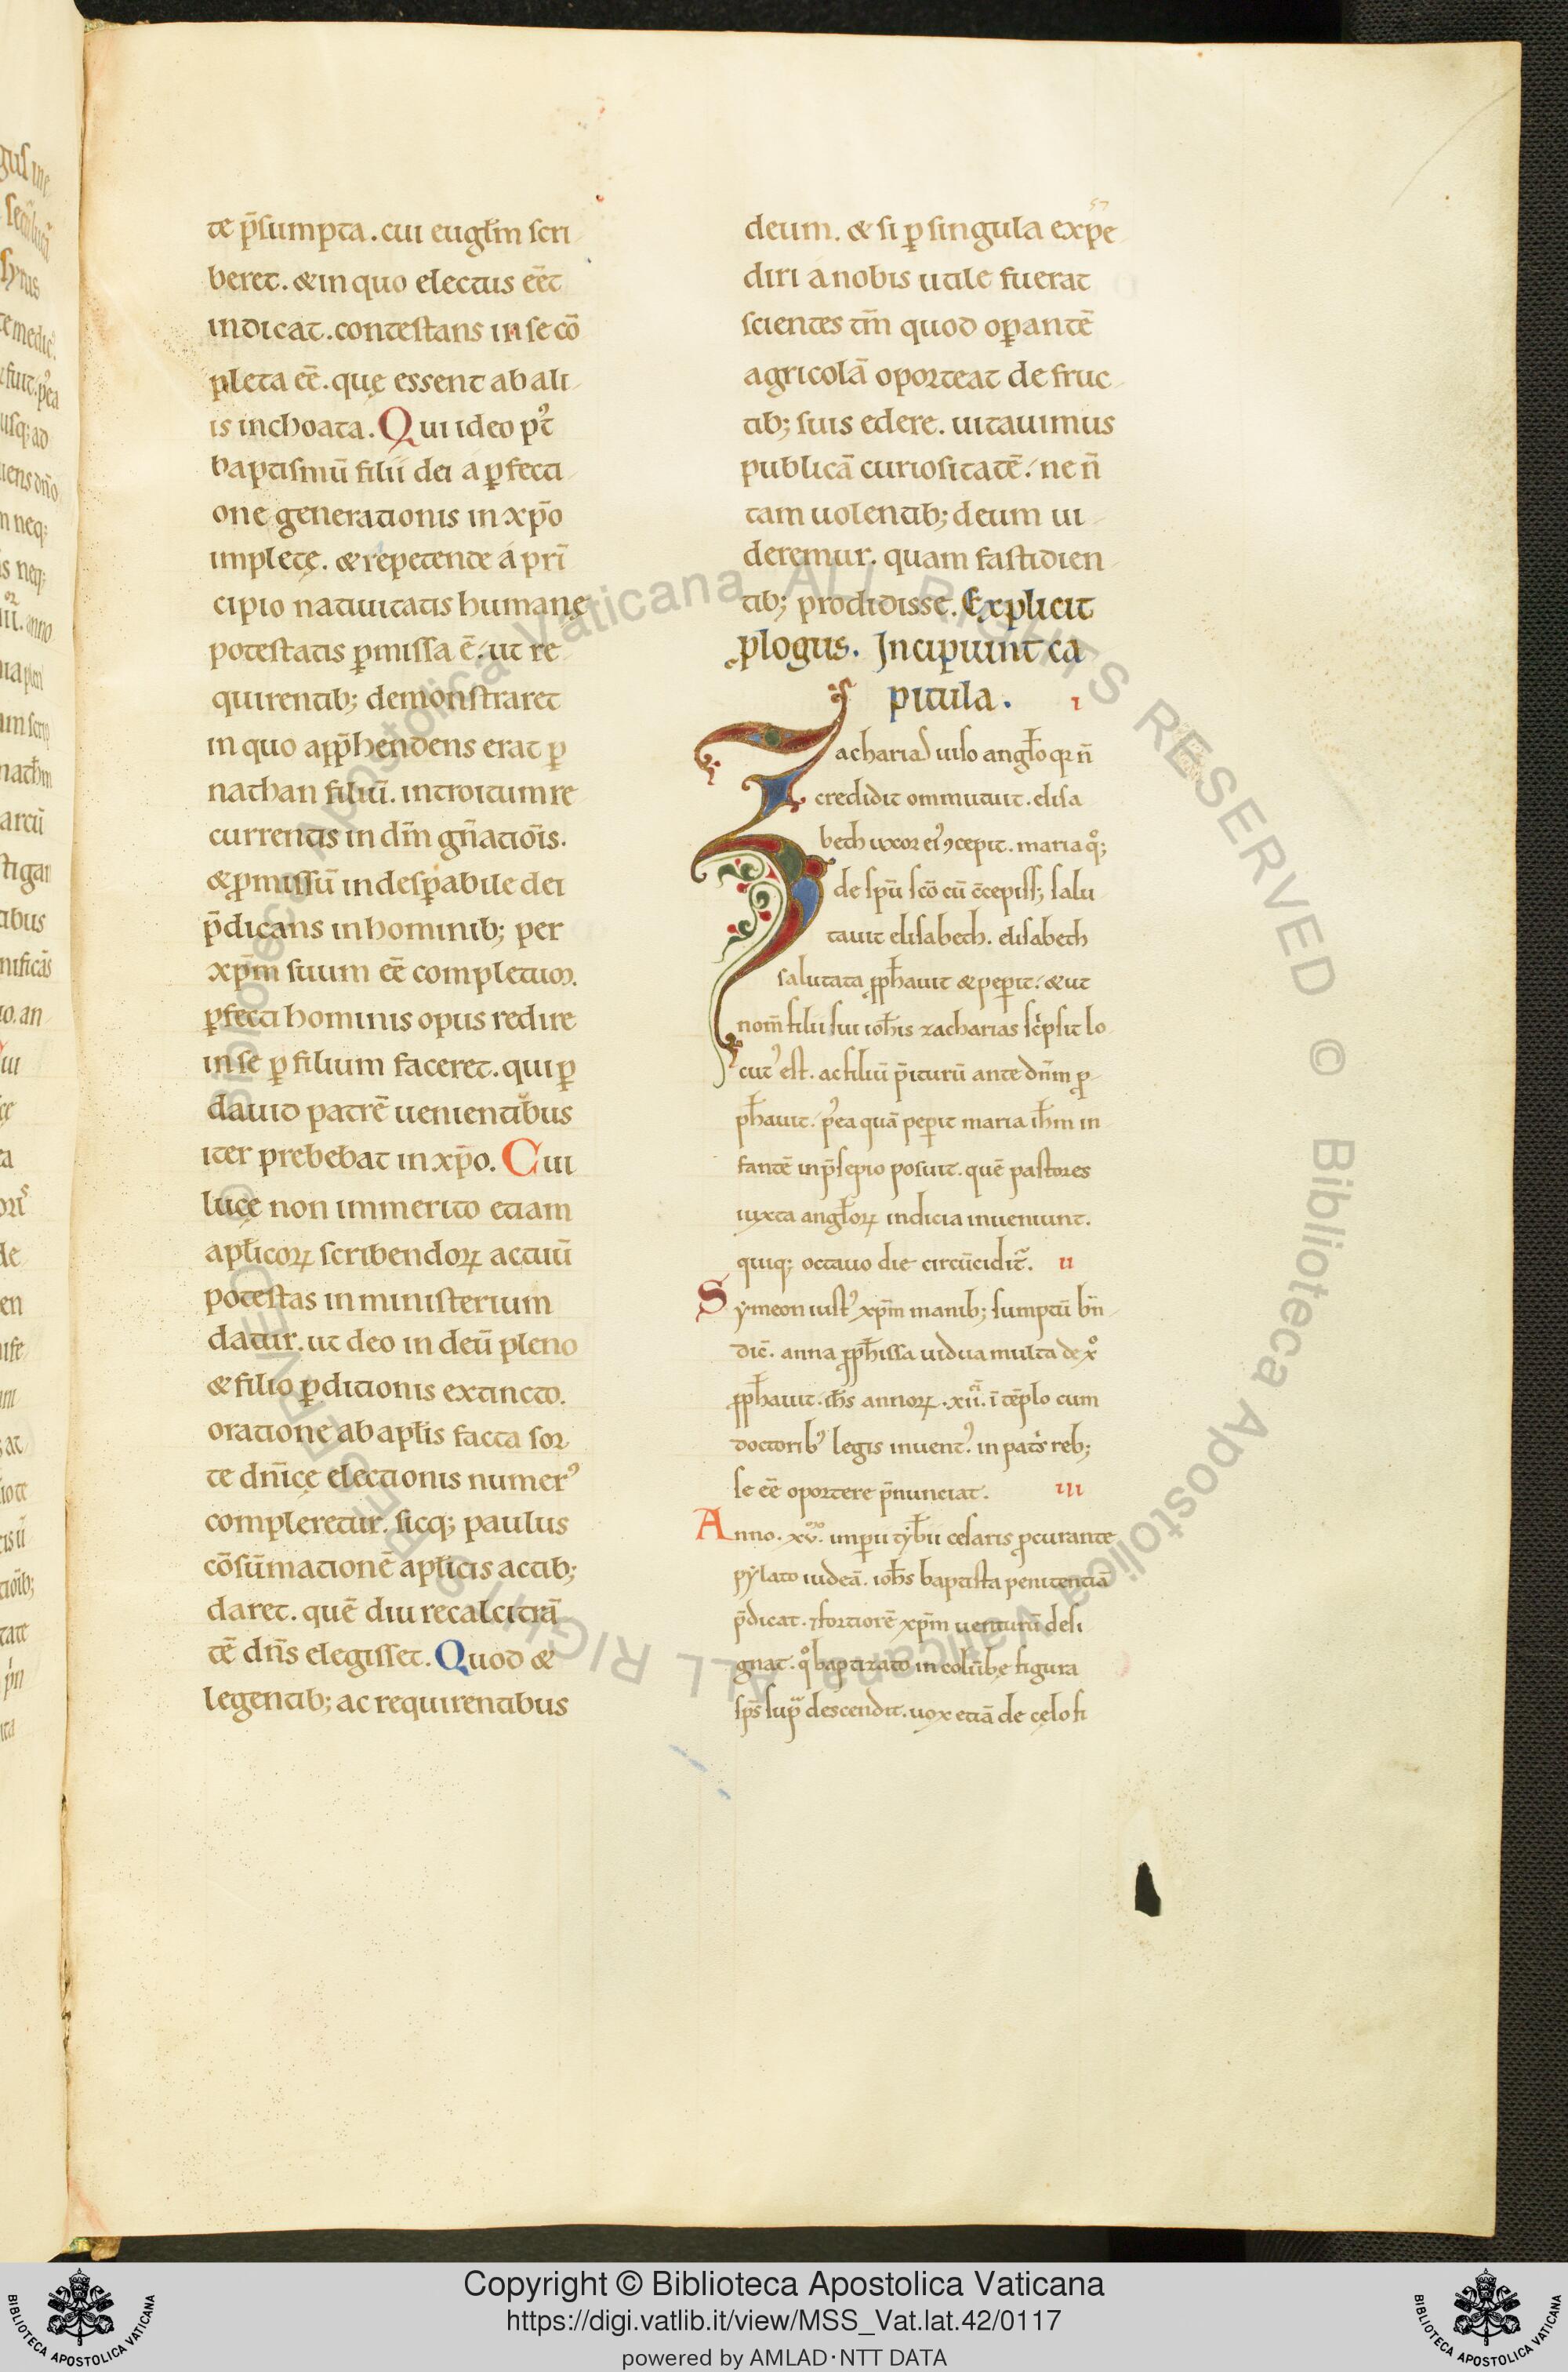 te p̄sumpta. cui eugl̄m scri
beret. & in quo electus eēt
indicat. contestans in se cō
pleta eē. quę essent ab ali
is inchoata. Qui ideo pꝰt
baptismū filii dei a ꝑfecti
one generationis in xp̄o
impletę. & repetende a pri
cipio natiuitatis humanę
potestatis ꝑmissa ē. ut re
quirentib; demonstraret
in quo app̄hendens erat ꝑ
nathan filiū. introitum re
currentis in dm̄ gn̄atiōis.
& ꝓmissū indesꝑabile dei
p̄dicans in hominib; per
xp̄m suum eē completum.
ꝑfecti hominis opus redire
in se ꝑ filium faceret. qui ꝑ
dauid patrē uenientibus
iter prebebat in xp̄o. Cui
lucę non immerito etiam
apl̄icoꝝ scribendoꝝ actuū
potestas in ministerium
datur. ut deo in deū pleno
& filio ꝑditionis extincto.
oratione ab apl̄is facta sor
te dn̄icę electionis numerꝰ
compleretur. sicq; paulus
cōsūmationē apl̄icis actib;
daret. quē diu recalcitrā
tē dn̄s elegisset. Quod &
legentib; ac requirentibus
57
deum. & si ꝑ singula expe
diri a nobis utile fuerat
scientes tm̄ quod oꝑantē
agricolā oporteat de fruc
tib; suis edere. uitauimus
publicā curiositatē. ne n̄
tam uolentib; deum ui
deremur. quam fastidien
tib; prodidisse. Explicit
ꝓlogus. Incipiunt ca
pitula. i
Zacharias uiso angl̄o qr n̄
credidit ommutuit. elisa
beth uxor eiꝰ ꝯcepit. maria qͦ;
de sp̄u sc̄o cū c̄cepiss; salu
tauit elisabeth. elisabeth
salutata ꝓph̄auit & peꝑit. & ut
nom̄ filii sui ioh̄is zacharias sc̍psit lo
cutꝰ est. ac filiū p̄iturū ante dn̄m ꝓ
ph̄auit. p̓ea quā peꝑit maria ih̄m in
fantē in p̄sepio posuit. quē pastores
iuxta angl̄oꝝ indicia inueniunt.
quiq; octauo die circūcidit᷑. ii
Symeon iustꝰ xp̄m manib; sumptū bn̄
dic̄. anna ꝓph̄issa uidua multa de xͦ
ꝓph̄auit. ih̄s annoꝝ .xii. ī tēplo cum
doctoribꝰ legis inuentꝰ. in pat̍s reb;
se eē oportere p̄nunciat. iii
Anno. xv. imꝑii tyb̄ii cesaris ꝓcurante
pylato iudeā. ioh̄s baptista penitentiā
p̄dicat. ⁊ fortiorē xp̄m uenturū desi
gnat. qͦ baptizato in colūbę figura
sp̄s supᷓ descendit. uox etiā de cęlo fi
Copyright © Biblioteca Apostolica Vaticana
https://digi.vatlib.it/view/MSS_Vat.lat.42/0117
powered by AMLAD·NTT DATA
BIBLIOTECA APOSTOLICA VATICANA
BIBLIOTECA APOSTOLICA VATICANA
© Biblioteca Apostolica Vaticana ALL RIGHTS RESERVED © Biblioteca Apostolica Vaticana ALL RIGHTS RESERVED